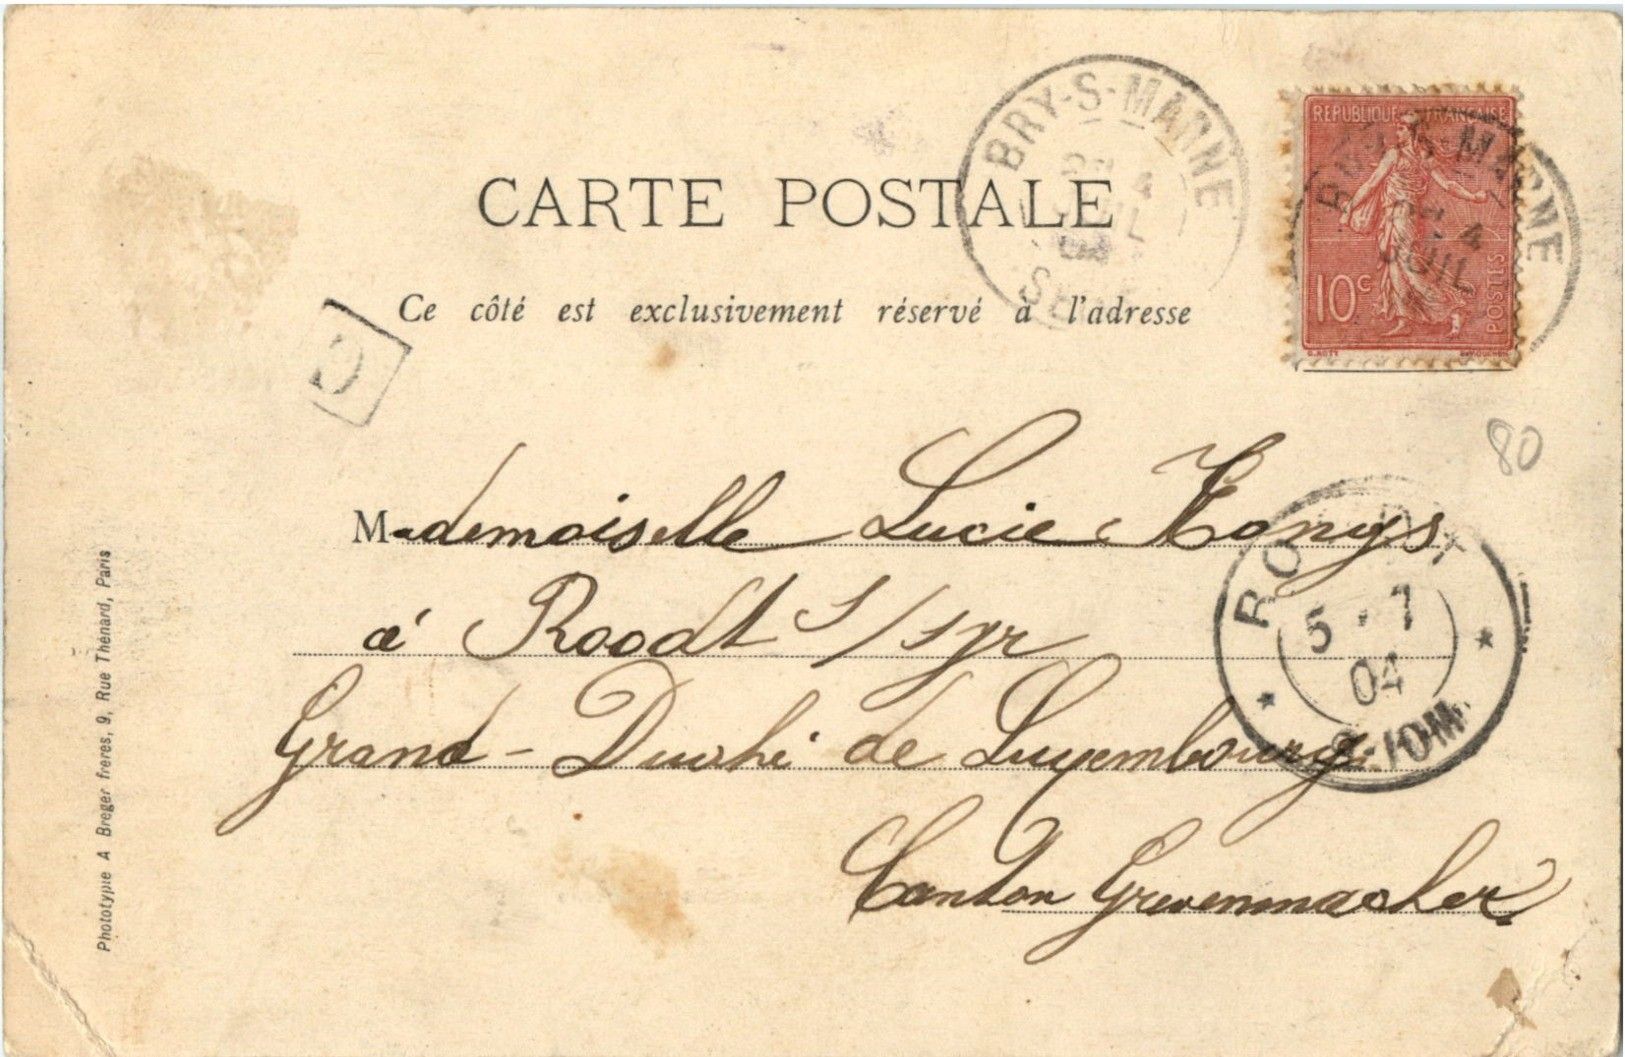 CARTE POSTALE
Ce côté est exclusivement réservé à l'adresse
BRY-S-MARNE
4
JUIL
04
REPUBLIQUE FRANÇAISE
10c
POSTES
O. ROTY
E. MOUCHON
BRY-S-MARNE
4
JUIL
G
80
Mademoiselle Lucie
à Roodt s/syr
Grand-Duché de Luxembourg
Canton Grevenmacher
5 · 7
04
8-10M.
Phototypie A Breger frères, 9, Rue Thénard, Paris